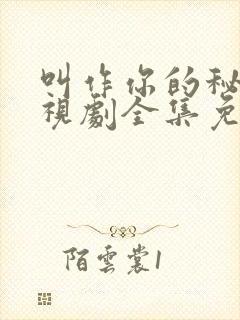 叫作你的秘
視劇全集免
陌雲裳1